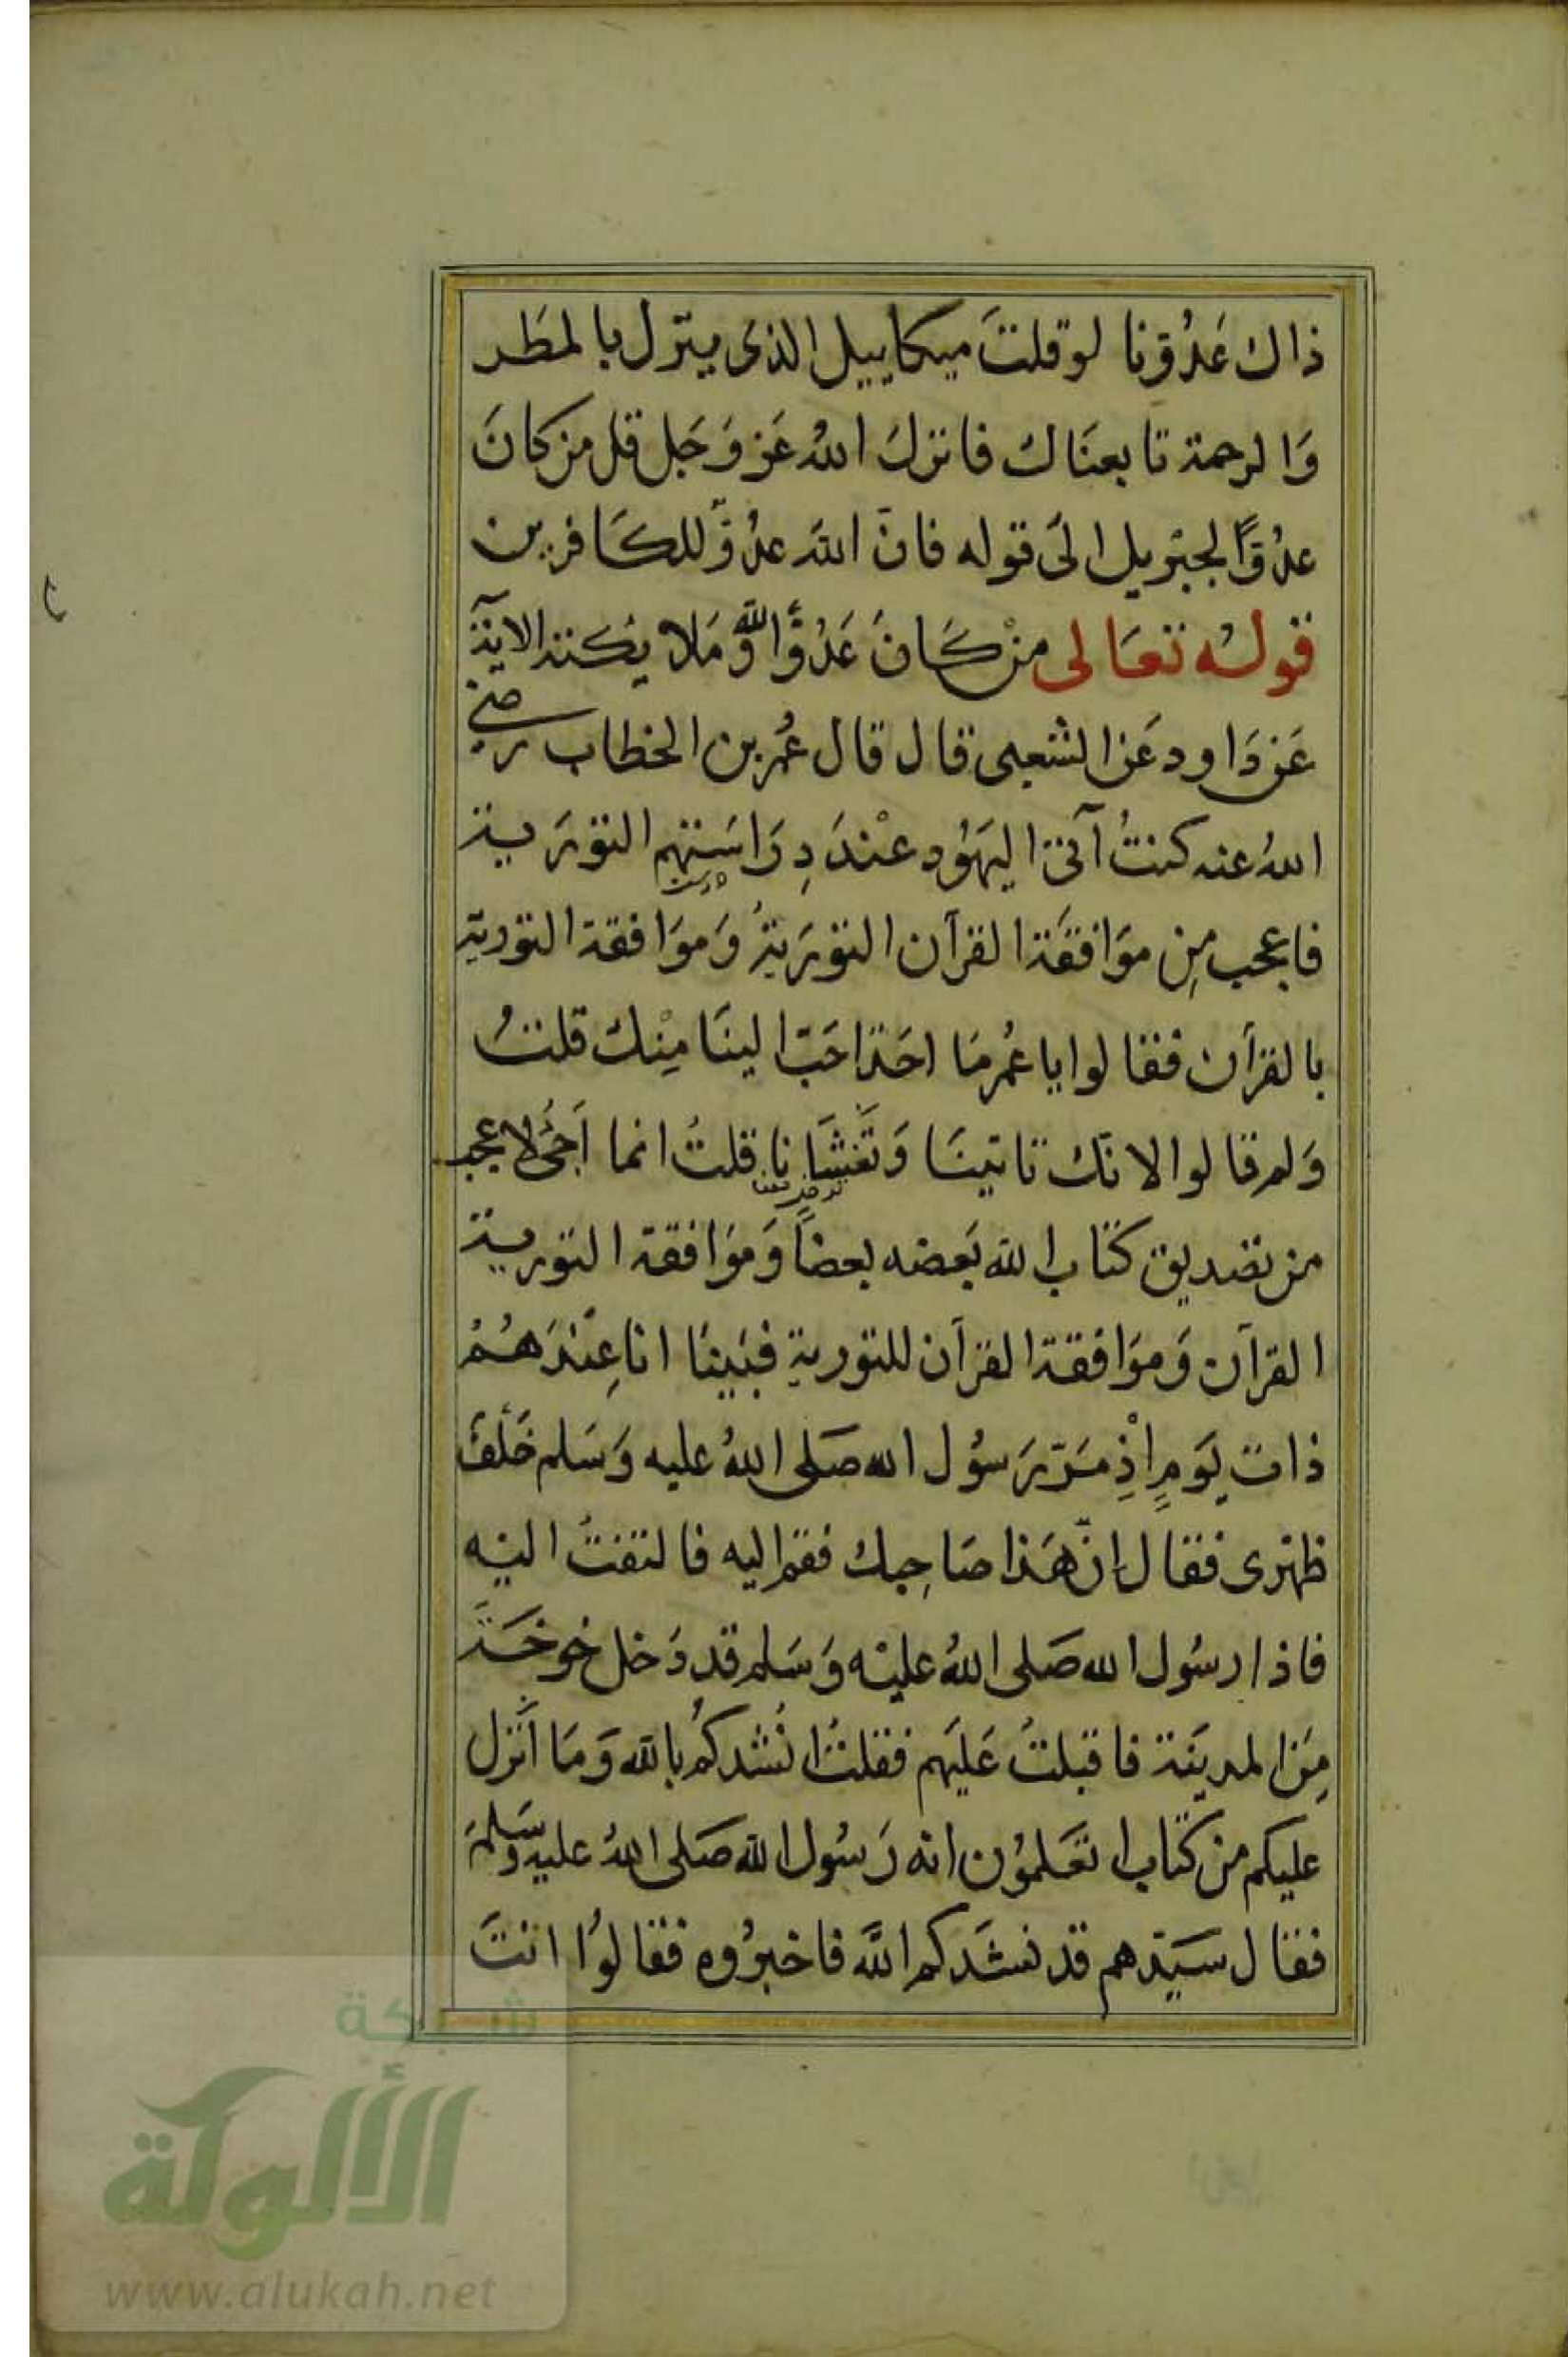 ذاك عَدُوّنا لو قلتَ ميكاييل الذى ينزل بالمطَر
وَالرحمة تابعنَاك فانزلَ اللهُ عَز وَجَل قل من كانَ
عدُوًّا لجبريل الَى قوله فانّ اللهَ عدُوٌّ للكَافرين
قولُه تعَالى منْ كَانَ عَدُوًّا للهِ وَّمَلايكته الآية
عَن دَاود عَن الشعبى قال قال عُمر بن الخطاب رضي
اللهُ عنه كنتُ آتى اليهَوُد عنْدَ دِرَاسَتهم التورَية
فاعجب مِن موَافقَة القرآن التورَيةُ وَموَافقة التورية
بالقرآن فقالوا يا عُمر مَا احَد احَبّ الينَا مِنْك قلتُ
وَلم قالوا لانّك تاتينَا وَتَغشَانا قلتُ انما اَجئُ لاعجب
من تصديق كتاب الله بَعضه بعضًا وَموَافقة التورية
القرآن وَموَافقة القرآن للتورية فبَينَا انا عِنْدَهُمْ
ذات يَومٍ اذْ مَرّ رَسُول الله صَلى اللهُ عليه وَسَلم خَلْفَ
ظهرى فقال انّ هَذا صَاحِبك فقم اليه فالتفتُ اليْه
فاذا رسُول الله صَلى اللهُ عليْه وَسَلم قد دَخل خوخَةً
مِنَ المدينَة فاقبلتُ عَليَهم فقلتُ انُشدكُم بالله وَمَا اَنزل
عليكم من كتاب اتعَلموُن انه رَسُول الله صَلى اللهُ عليه وسَلمَ
فقال سَيّدهم قد نشَدكم اللهَ فاخبرُوه فقالوُا انتَ
شبكة
الألوكة
www.alukah.net